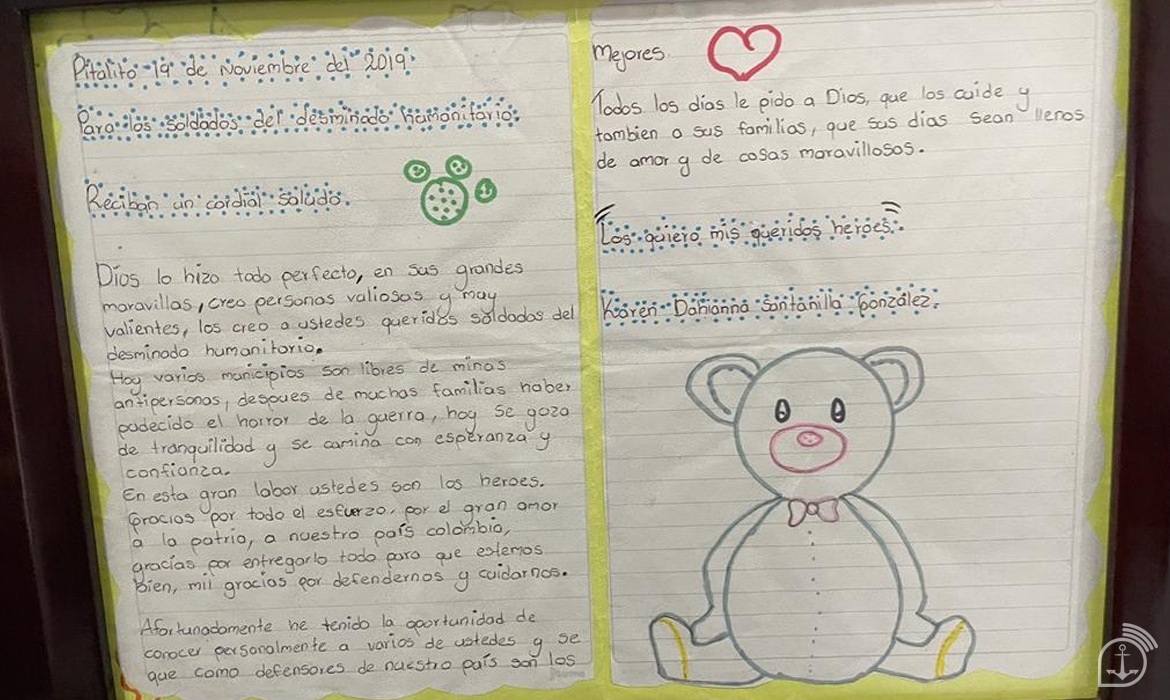 Pitalito 19 de Noviembre del 2019.
Para los soldados del desminado humanitario.
Reciban un cordial saludo.
Dios lo hizo todo perfecto, en sus grandes
maravillas, creo personas valiosas y muy
valientes, los creo a ustedes queridos soldados del
desminado humanitario.
Hoy varios municipios son libres de minas
antipersonas, despues de muchas familias haber
padecido el horror de la guerra, hoy se goza
de tranquilidad y se camina con esperanza y
confianza.
En esta gran labor ustedes son los heroes.
Gracias por todo el esfuerzo, por el gran amor
a la patria, a nuestro país colombia,
gracías por entregarlo todo para que estemos
Bien, mil gracias por defendernos y cuidarnos.
Afortunadamente he tenido la oportunidad de
conocer personalmente a varios de ustedes y se
que como defensores de nuestro país son los
Mejores.
Todos los días le pido a Dios, que los cuide y
tambien a sus familias, que sus días sean llenos
de amor y de cosas maravillosas.
Los quiero mis queridos heroes.
Karen Dahianna Santanilla González.